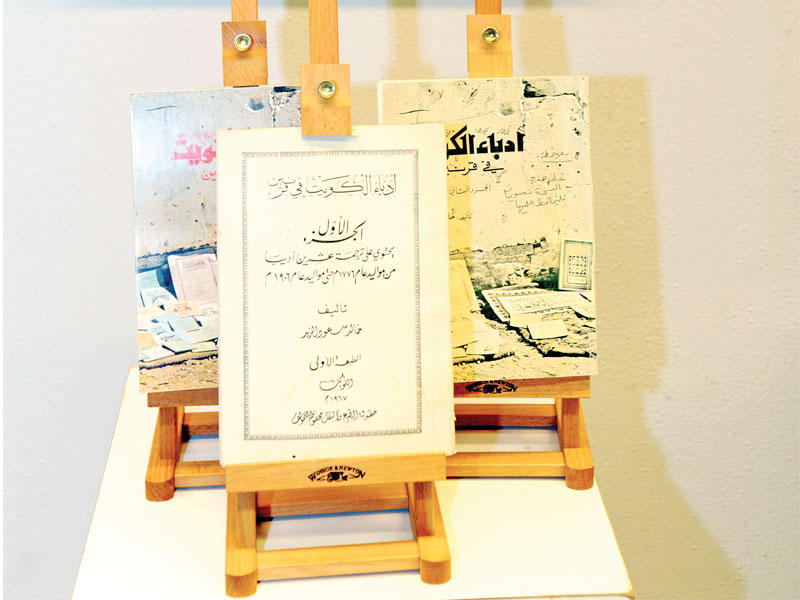 أدباء الكويت في قرنين
الجزء الأول
يحتوي على ترجمة عشرين أديبا
من مواليد عام ١٧٧٦م حتى مواليد عام ١٩٠٦م
تأليف
خالد سعود الزيد
الطبعة الأولى
الكويت
١٩٦٧م
حقوق الطبع والنقل محفوظة للمؤلف
WINSOR & NEWTON
أدباء الكو
في قرنـ
الجزء الثاني
WINSOR & NEWTON
ويت
ين